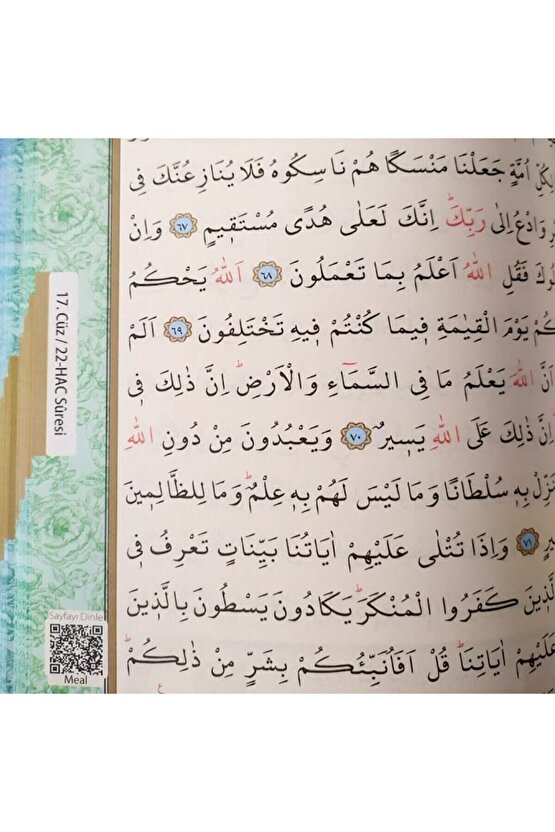 اُمَّةٍ جَعَلْنَا مَنْسَكًا هُمْ نَاسِكُوهُ فَلَا يُنَازِعُنَّكَ فِى
وَادْعُ اِلٰى رَبِّكَ اِنَّكَ لَعَلٰى هُدًى مُسْتَقٖيمٍ ﴿٦٧﴾ وَاِنْ
فَقُلِ اللّٰهُ اَعْلَمُ بِمَا تَعْمَلُونَ ﴿٦٨﴾ اَللّٰهُ يَحْكُمُ
يَوْمَ الْقِيٰمَةِ فٖيمَا كُنْتُمْ فٖيهِ تَخْتَلِفُونَ ﴿٦٩﴾ اَلَمْ
اَنَّ اللّٰهَ يَعْلَمُ مَا فِى السَّمَٓاءِ وَالْاَرْضِ اِنَّ ذٰلِكَ فٖى
اِنَّ ذٰلِكَ عَلَى اللّٰهِ يَسٖيرٌ ﴿٧٠﴾ وَيَعْبُدُونَ مِنْ دُونِ اللّٰهِ
بِهٖ سُلْطَانًا وَمَا لَيْسَ لَهُمْ بِهٖ عِلْمٌ وَمَا لِلظَّالِمٖينَ
﴿٧١﴾ وَاِذَا تُتْلٰى عَلَيْهِمْ اٰيَاتُنَا بَيِّنَاتٍ تَعْرِفُ فٖى
كَفَرُوا الْمُنْكَرَ يَكَادُونَ يَسْطُونَ بِالَّذٖينَ
عَلَيْهِمْ اٰيَاتِنَا قُلْ اَفَاُنَبِّئُكُمْ بِشَرٍّ مِنْ ذٰلِكُمْ
ع
17. Cüz / 22-HAC Sûresi
Sayfayı Dinle
Meal